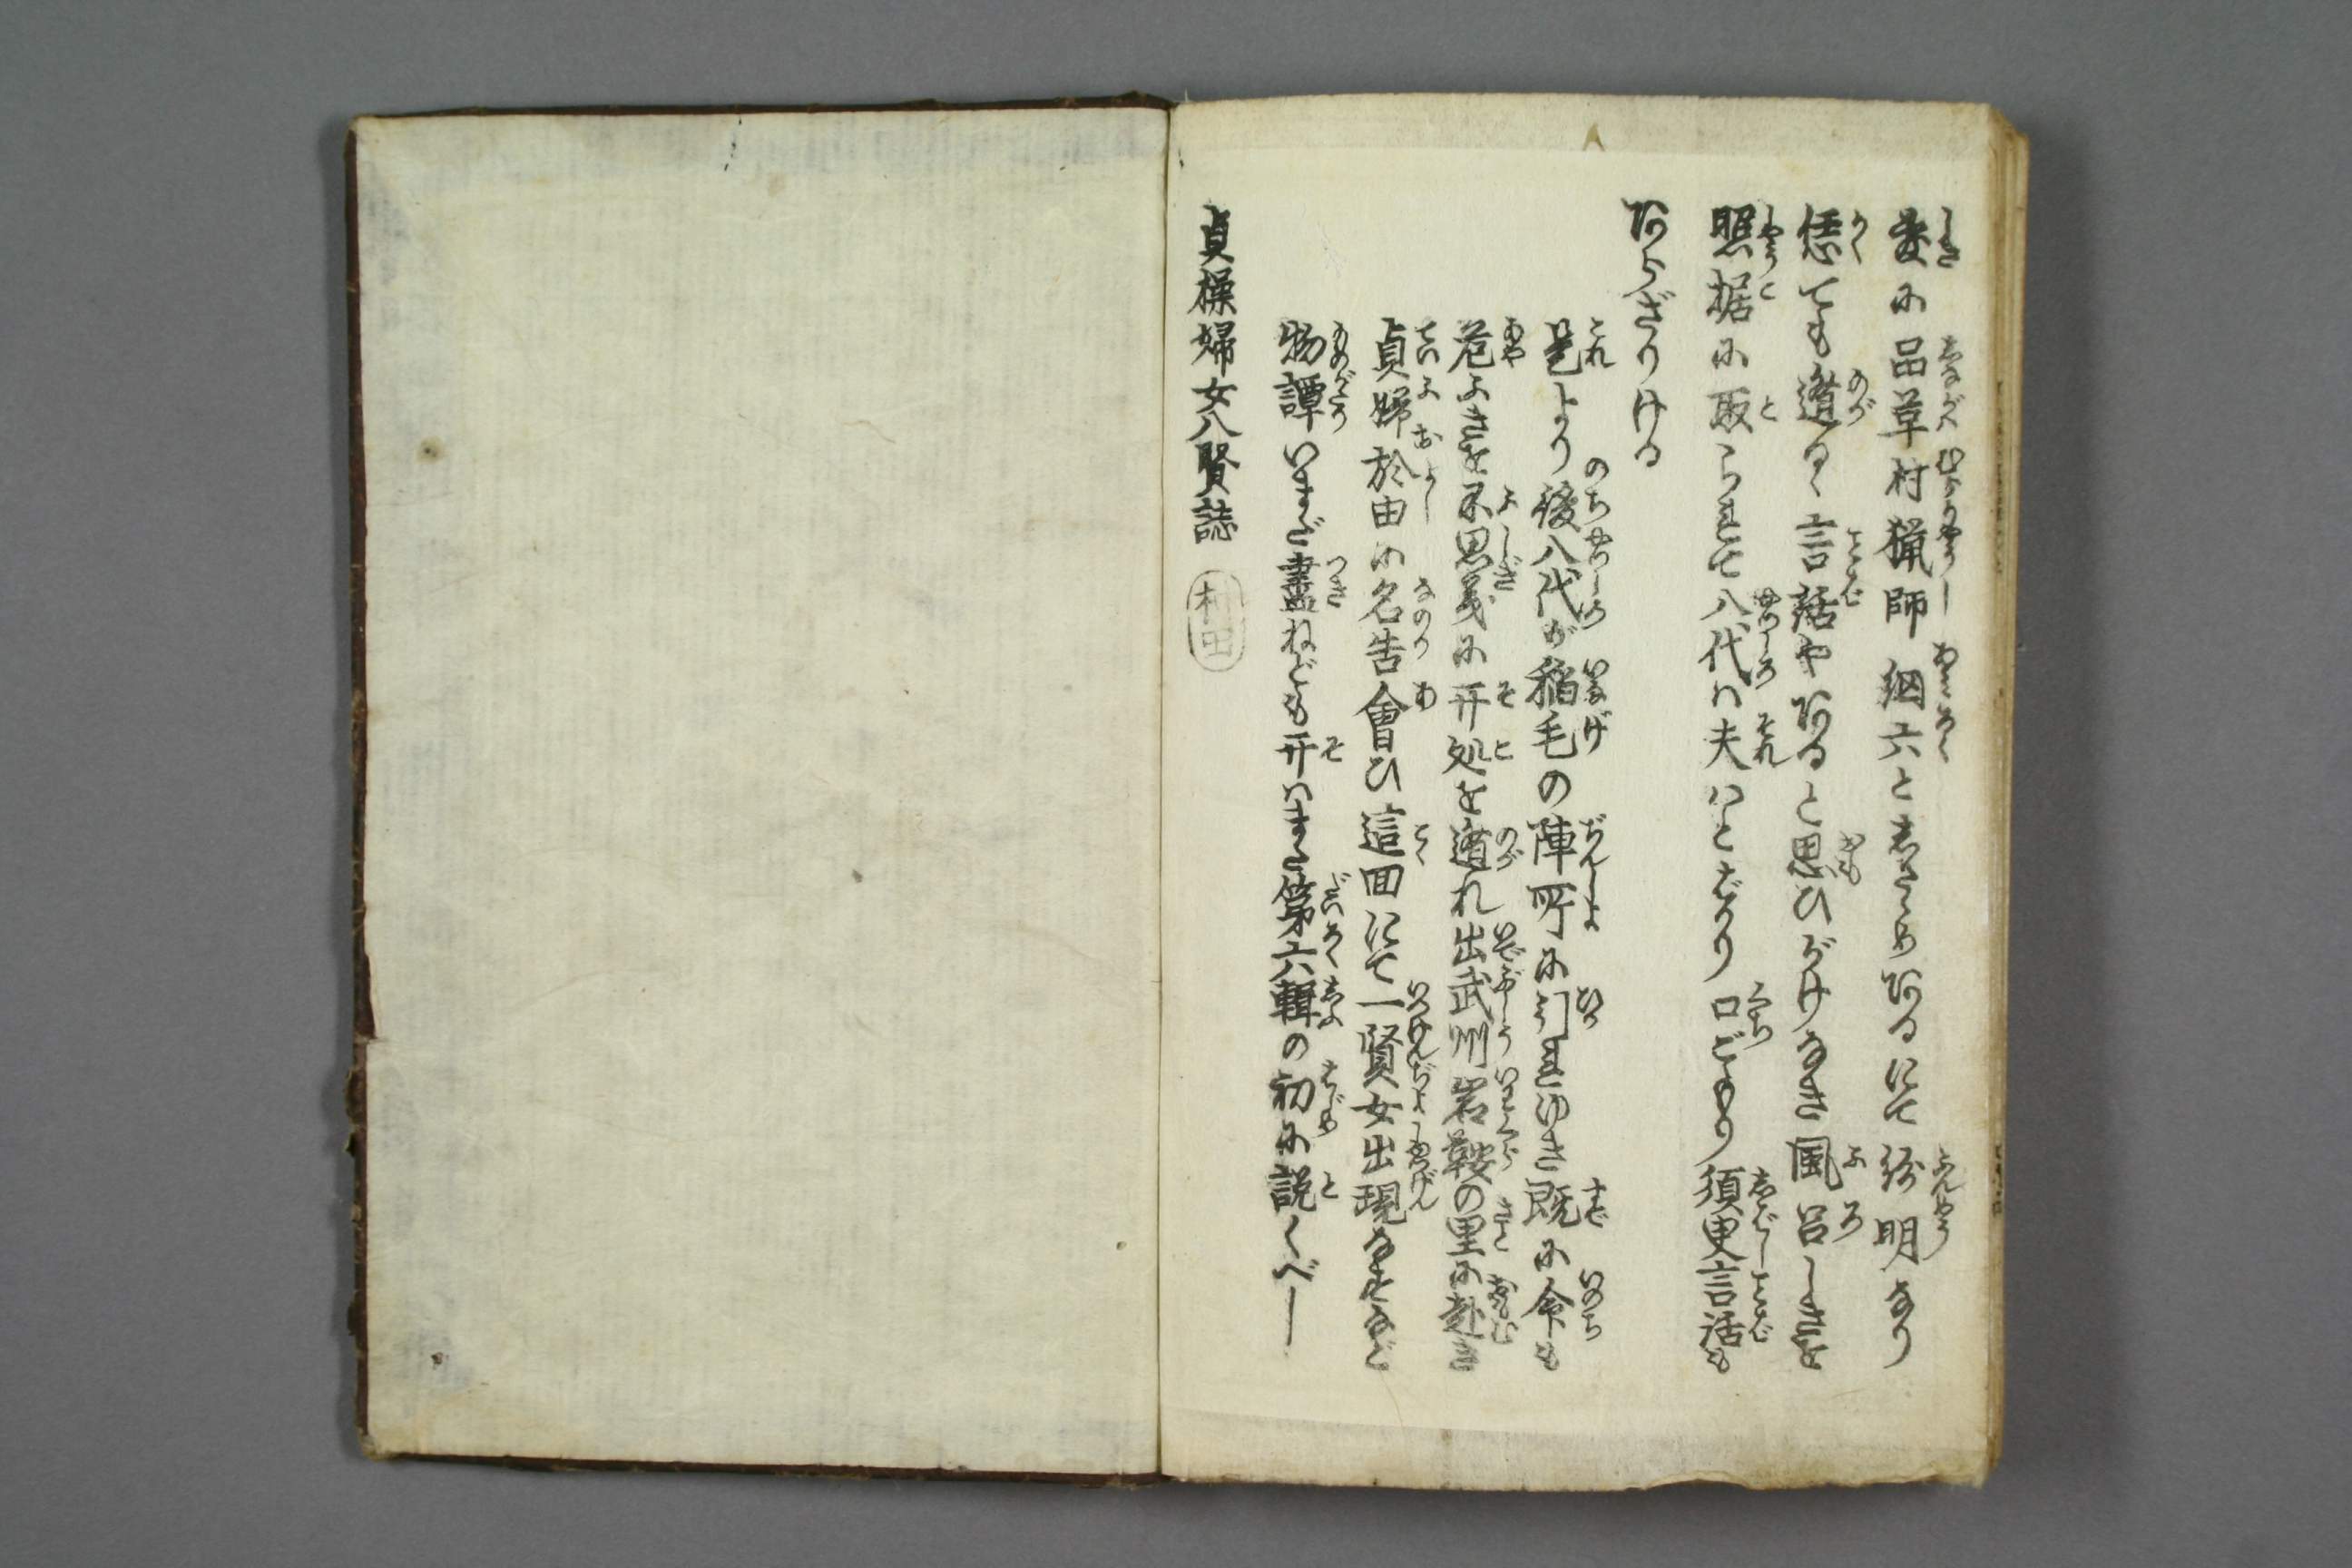 爰に品草村猟師綱六としるしあるにて紛明なり
恁ても遁るゝ言話やあると思ひがけなき風呂しきを
照据に取られて八代ハ夫ハとばかり口ごもり須臾言活も
あらざりける
是より後八代が稲毛の陣所に引れゆき既に命も
危ふきを不思義に开処を遁れ出武州岩鞍の里に赴き
貞婦於由に名告會ひ這回にて一賢女出現なすなど
物譚いまだ盡ねども开ハまた第六輯の初に説くべし
貞操婦女八賢誌
村田